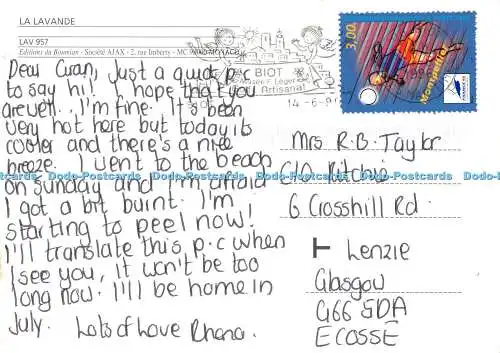 LA LAVANDE
LAV 957
Editions du Boumian - Société AJAX - 2, rue Imberty - MC 98000 MONACO
BIOT
Musée F. Léger
Artisanat
14-6-9
3,00
Montpellier
FRANCE 98
Dear Gran, Just a quick p.c
to say hi! I hope that you
are well. I'm fine. It's been
very hot here but today its
cooler and there's a nice
breeze. I went to the beach
on Sunday and I'm afraid
I got a bit burnt. I'm
starting to peel now!
I'll translate this p.c when
I see you, it won't be too
long now. I'll be home in
July. Lots of Love Rhona.
Mrs R.B. Taylor
C/O Ritchie
6 Crosshill Rd.
Lenzie
Glasgow
G66 5DA
ECOSSE
Dodo-Postcards Dodo-Postcards Dodo-Postcards Dodo-Postcards Dodo-Postcards